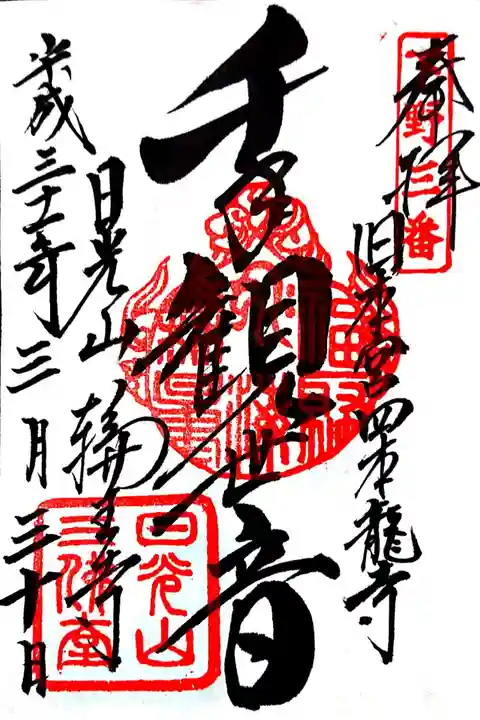 奉拝
下野三番
旧本宮四本龍寺
千手観世音
日光山輪王寺
平成三十一年三月三十日
日光山
三佛堂